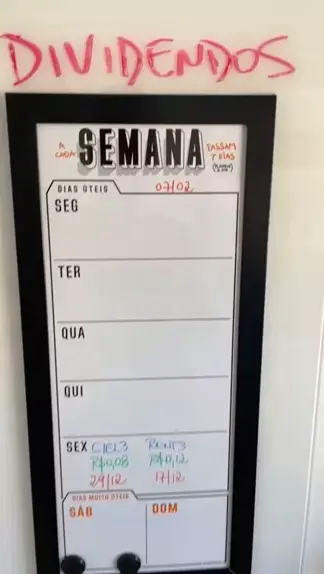 DIVIDENDOS
A CADA SEMANA PASSAM 7 DIAS
DIAS ÚTEIS 07/02
SEG
TER
QUA
QUI
SEX CIEL3 RENT3
R$0,08 R$0,12
29/12 17/12
DIAS MUITO ÚTEIS
SÁB DOM